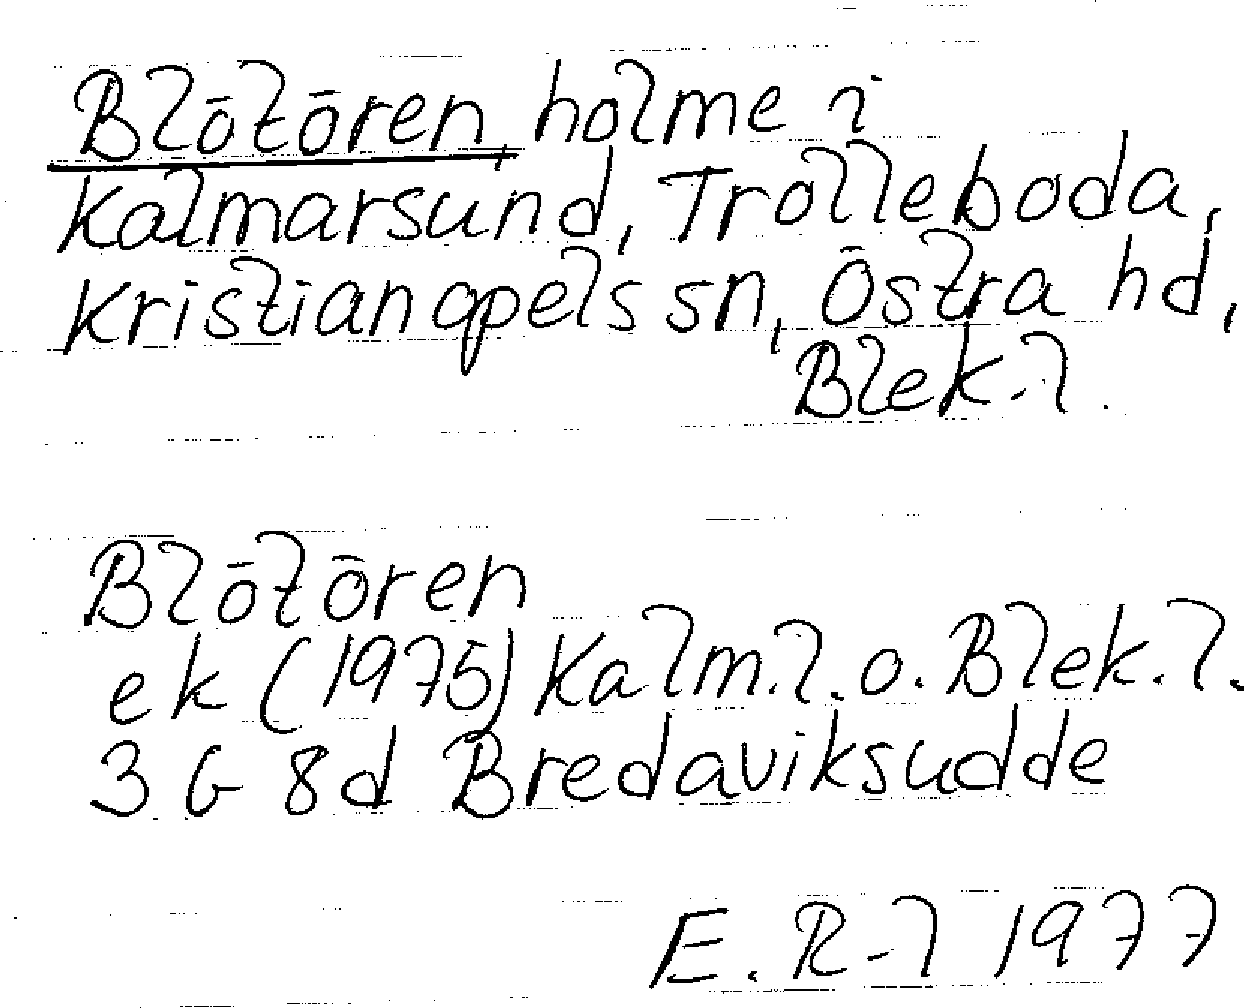 Blötören, holme i
Kalmarsund, Trolleboda,
Kristianopels sn, Östra hd,
Blek. l.
Blötören
ek (1975) Kalm. l. o. Blek. l.
3 G 8d Bredaviksudde
E. R-l 1977